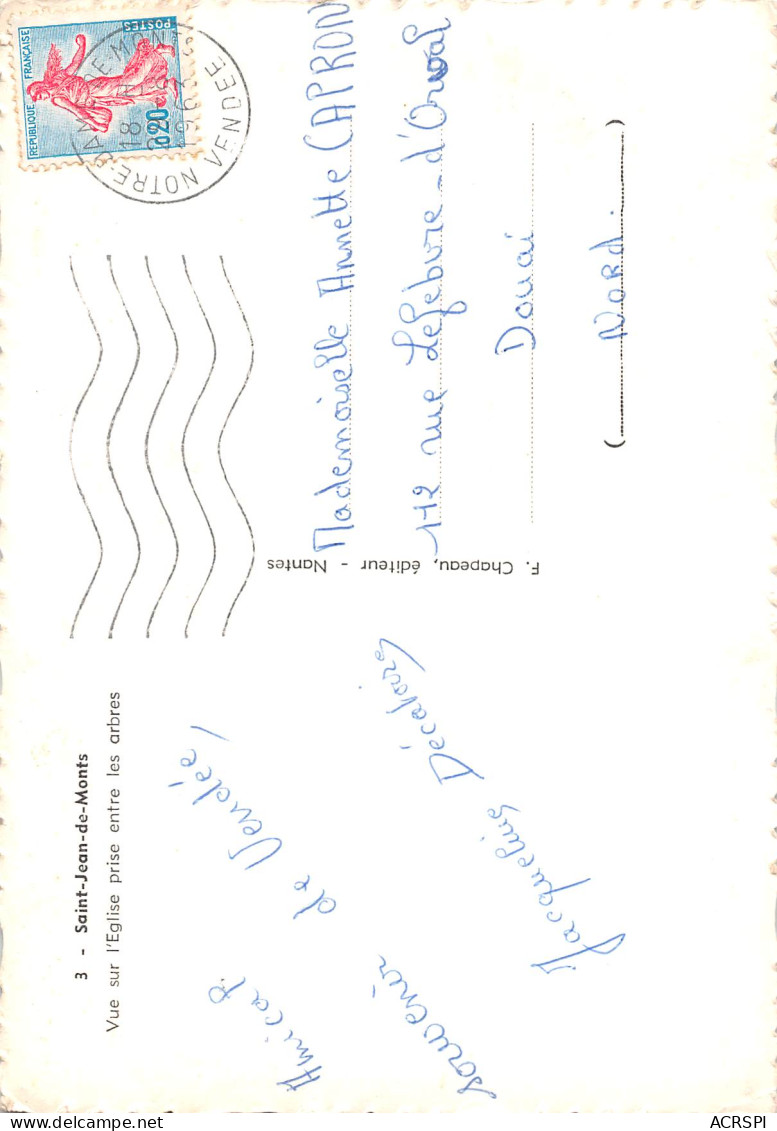 3 - Saint-Jean-de-Monts
Vue sur l'Eglise prise entre les arbres
Amical
souvenir de Vendée,
Jacqueline
F. Chapeau, éditeur - Nantes
REPUBLIQUE FRANÇAISE
POSTES
0,20
NOTRE-DAME-DE-MONTS
18 H
1963
VENDEE
Mademoiselle Annette CAPRON
112 rue Lefebvre-d'Orval
Douai
(NORD.)
ACRSPI